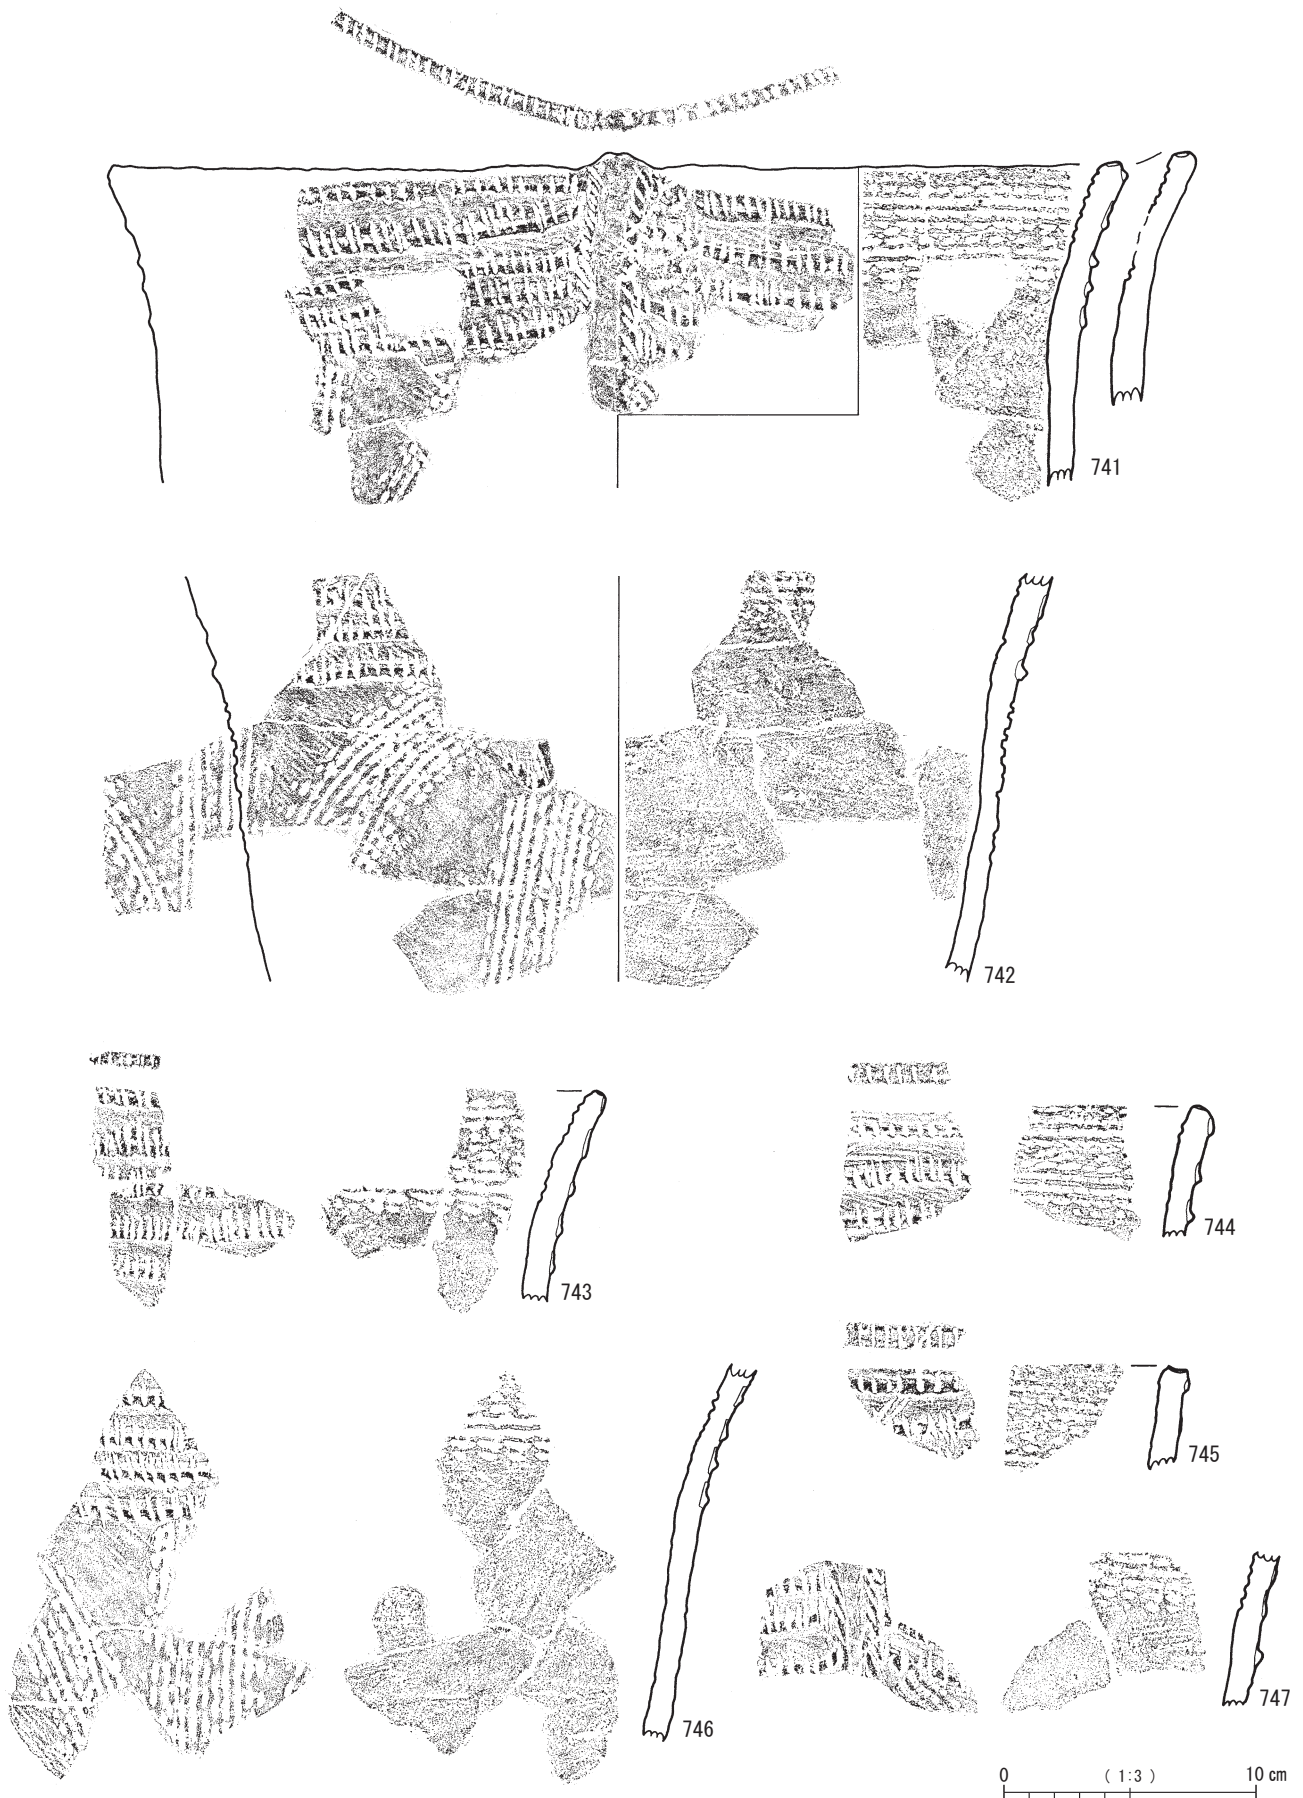 741
742
743
744
745
746
747
0 ( 1:3 ) 10 cm